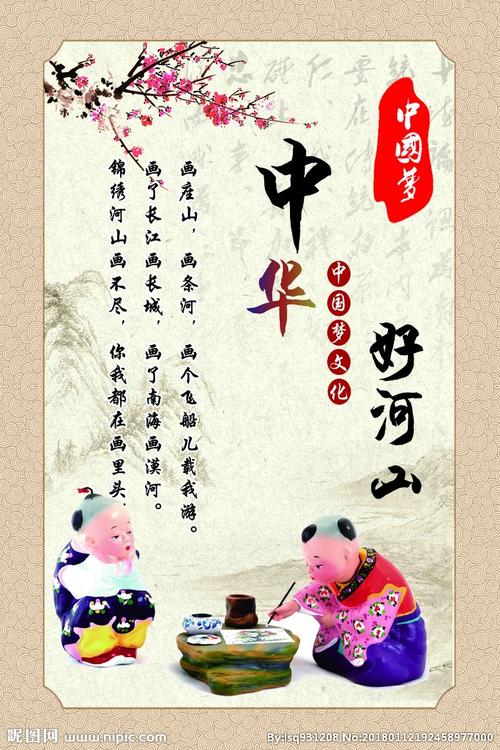 中國梦
中华
好河山
中国梦文化
画座山，画条河，画个飞船儿载我游。
画宁长江画长城，画了南海画漠河。
锦绣河山画不尽，你我都在画里头.
昵图网 www.nipic.com
By:lsq931208 No:20180112192458977000